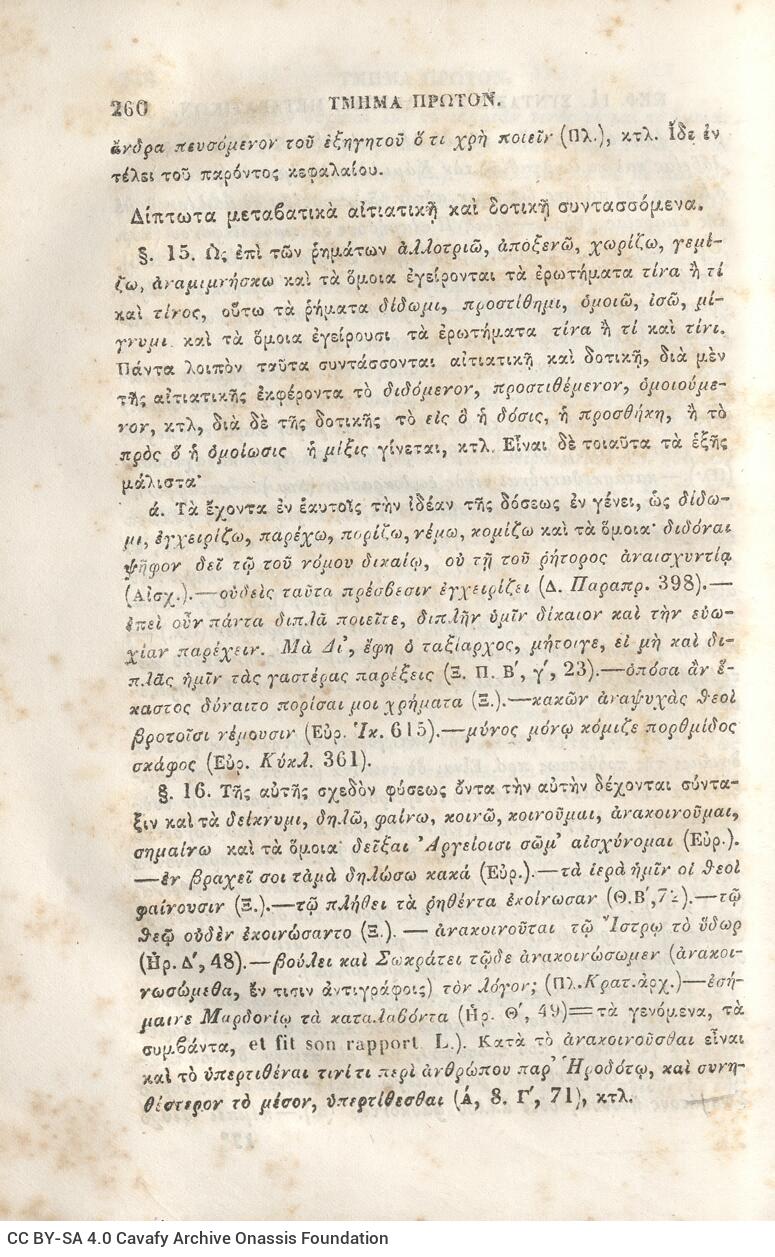 260
ΤΜΗΜΑ ΠΡΩΤΟΝ.
ἄνδρα πευσόμενον τοῦ ἐξηγητοῦ ὅ τι χρὴ ποιεῖν (Πλ.), κτλ. Ἴδε ἐν
τέλει τοῦ παρόντος κεφαλαίου.
Δίπτωτα μεταβατικὰ αἰτιατικῇ καὶ δοτικῇ συντασσόμενα.
§. 15. Ὡς ἐπὶ τῶν ῥημάτων ἀλλοτριῶ, ἀποξενῶ, χωρίζω, γεμί-
ζω, ἀναμιμνήσκω καὶ τὰ ὅμοια ἐγείρονται τὰ ἐρωτήματα τίνα ἢ τί
καὶ τίνος, οὕτω τὰ ῥήματα δίδωμι, προστίθημι, ὁμοιῶ, ἰσῶ, μί-
γνυμι καὶ τὰ ὅμοια ἐγείρουσι τὰ ἐρωτήματα τίνα ἢ τί καὶ τίνι.
Πάντα λοιπὸν ταῦτα συντάσσονται αἰτιατικῇ καὶ δοτικῇ, διὰ μὲν
τῆς αἰτιατικῆς ἐκφέροντα τὸ διδόμενον, προστιθέμενον, ὁμοιούμε-
νον, κτλ, διὰ δὲ τῆς δοτικῆς τὸ εἰς ὃ ἡ δόσις, ἡ προσθήκη, ἢ τὸ
πρὸς ὃ ἡ ὁμοίωσις ἡ μίξις γίνεται, κτλ. Εἶναι δὲ τοιαῦτα τὰ ἑξῆς
μάλιστα·
ά. Τὰ ἔχοντα ἐν ἑαυτοῖς τὴν ἰδέαν τῆς δόσεως ἐν γένει, ὡς δίδω-
μι, ἐγχειρίζω, παρέχω, πορίζω, νέμω, κομίζω καὶ τὰ ὅμοια· διδόναι
ψῆφον δεῖ τῷ τοῦ νόμου δικαίῳ, οὐ τῇ τοῦ ῥήτορος ἀναισχυντίᾳ
(Αἰσχ.).—οὐδεὶς ταῦτα πρέσβεσιν ἐγχειρίζει (Δ. Παραπρ. 398).—
ἐπεὶ οὖν πάντα διπλᾶ ποιεῖτε, διπλῆν ὑμῖν δίκαιον καὶ τὴν εὐω-
χίαν παρέχειν. Μὰ Δί', ἔφη ὁ ταξίαρχος, μήτοιγε, εἰ μὴ καὶ δι-
πλᾶς ἡμῖν τὰς γαστέρας παρέξεις (Ξ. Π. Β′, γ′, 23).—ὁπόσα ἂν ἕ-
καστος δύναιτο πορίσαι μοι χρήματα (Ξ.).—κακῶν ἀναψυχὰς θεοὶ
βροτοῖσι νέμουσιν (Εὐρ. Ἱκ. 615).—μόνος μόνῳ κόμιζε πορθμίδος
σκάφος (Εὐρ. Κύκλ. 361).
§. 16. Τῆς αὐτῆς σχεδὸν φύσεως ὄντα τὴν αὐτὴν δέχονται σύντα-
ξιν καὶ τὰ δείκνυμι, δηλῶ, φαίνω, κοινῶ, κοινοῦμαι, ἀνακοινοῦμαι,
σημαίνω καὶ τὰ ὅμοια· δεῖξαι Ἀργείοισι σῶμ' αἰσχύνομαι (Εὐρ.).
—ἐν βραχεῖ σοι τἀμὰ δηλώσω κακά (Εὐρ.).—τὰ ἱερὰ ἡμῖν οἱ θεοὶ
φαίνουσιν (Ξ.).—τῷ πλήθει τὰ ῥηθέντα ἐκοίνωσαν (Θ.Β′,72).—τῷ
θεῷ οὐδὲν ἐκοινώσαντο (Ξ.). — ἀνακοινοῦται τῷ Ἴστρῳ τὸ ὕδωρ
(Ἡρ. Δ′, 48).—βούλει καὶ Σωκράτει τῷδε ἀνακοινώσωμεν (ἀνακοι-
νωσώμεθα, ἔν τισιν ἀντιγράφοις) τὸν λόγον; (Πλ.Κρατ.ἀρχ.)—ἐσή-
μαινε Μαρδονίῳ τὰ καταλαβόντα (Ἡρ. Θ′, 49)=τὰ γενόμενα, τὰ
συμβάντα, et fit son rapport L.). Κατὰ τὸ ἀνακοινοῦσθαι εἶναι
καὶ τὸ ὑπερτιθέναι τινίτι περὶ ἀνθρώπου παρ' Ἡροδότῳ, καὶ συνη-
θέστερον τὸ μέσον, ὑπερτίθεσθαι (Ά, 8. Γ′, 71), κτλ.
CC BY-SA 4.0 Cavafy Archive Onassis Foundation